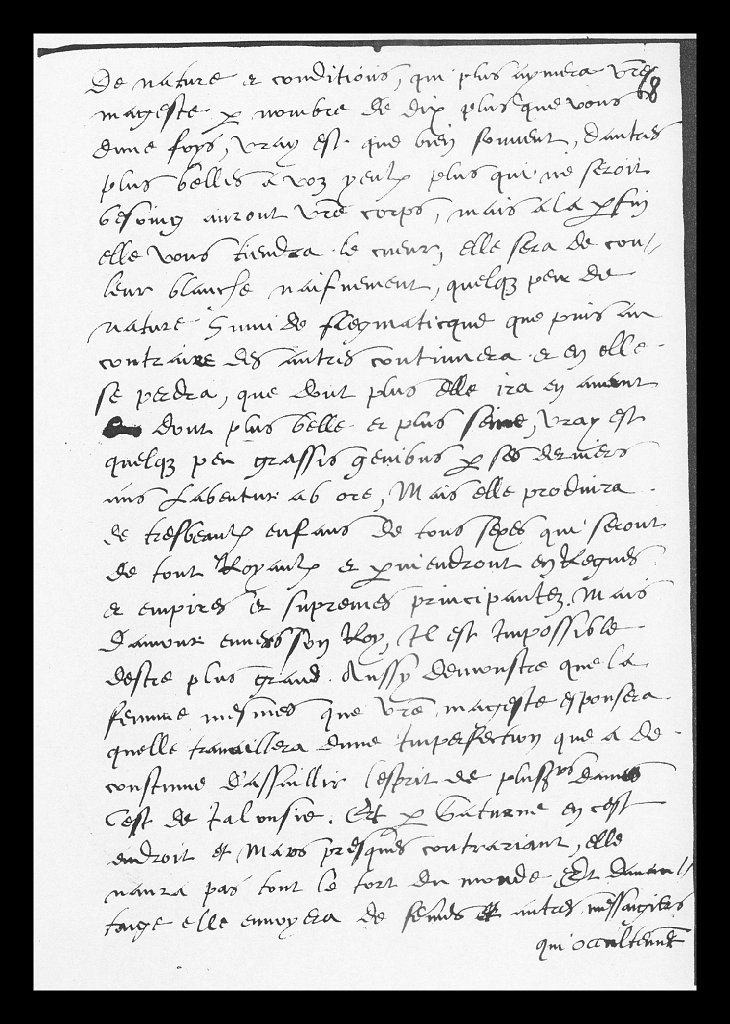 De nature et conditions, qui plus aymera vre
68
mageste p nombre de dix plus que vous
dune foys, vray est que bien souvent, dautres
plus belles a voz yeulx plus qui ne seroit
besoing auront vre corps, mais a la p fin
elle vous tiendra le cueur, elle sera de cou/
leur blanche naifvement, quelq peu de
nature humide flegmaticque que puis au
contraire des autres continuera et en elle
se perdra, que dont plus elle ira en avant
dont plus belle et plus seine, vray est
quelq peu grassis genibus p ses derniers
ans Labentur ab ore, Mais elle produira
de tresbeaulx enfans de tous sexes qui seront
de tout Royaulx et pviendront en Regnes
et empires et supremes principautez. Mais
damour envers son Roy, Il est Impossible
destre plus grand. Aussy demonstre que la
femme mesmes que vre mageste esponsera
quelle travaillera dune Imperfection que a de
coustume d'assaillir lesprit de plusrs dames
Cest de Jalousie. Et p Saturne en cest
endroit et Mars presques contrariant, elle
naura pas tout le tort du monde Et davan/
taige elle envoyera de femes et autres messaigiers
qui occultement